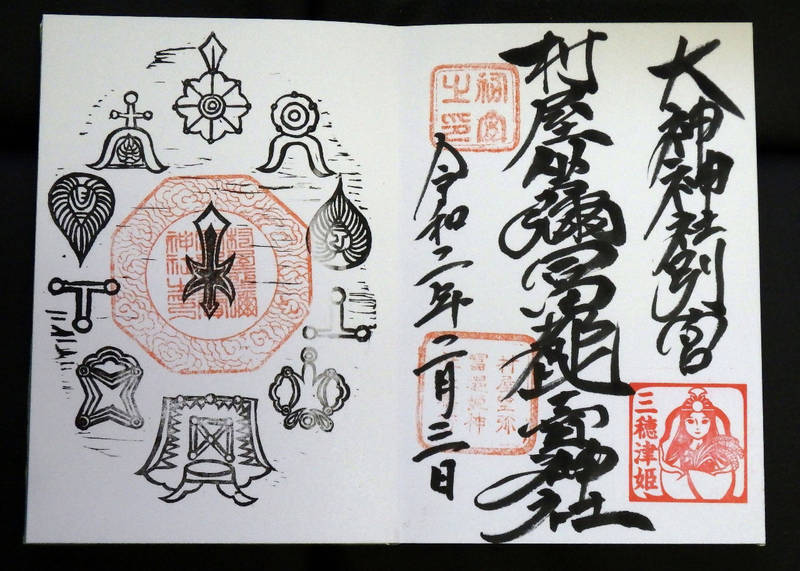 大神神社別宮
三穂津姫
村屋坐彌冨都比売神社
祢宜之印
令和二年二月三日